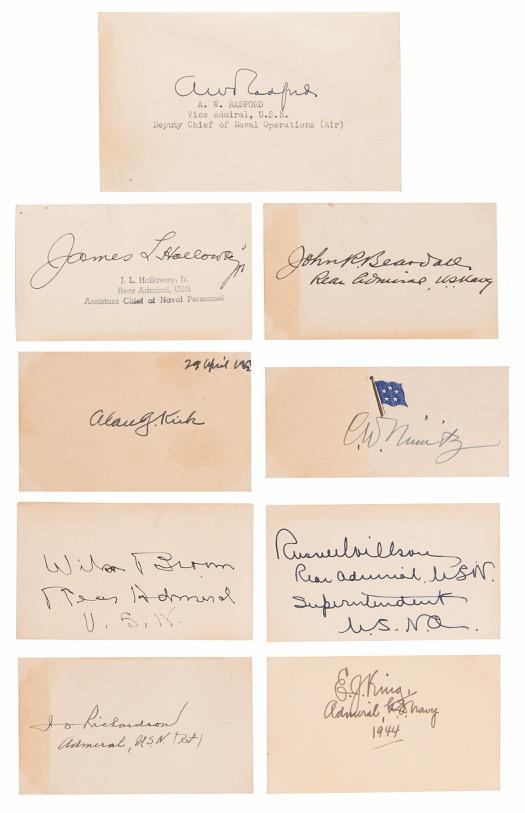 AW Radford
A. W. RADFORD
Vice Admiral, U.S.N.
Deputy Chief of Naval Operations (Air)
James L Holloway Jr
J. L. Holloway, Jr.
Rear Admiral, USN
Assistant Chief of Naval Personnel
John R. Beardall
Rear Admiral, US Navy
29 April
Alan G. Kirk
C.W. Nimitz
Wilson Brown
Rear Admiral
U.S.N.
Russell Willson
Rear admiral, U.S.N.
Superintendent
U.S.N.A.
J O Richardson
Admiral, U.S.N. (Ret)
E.J. King,
Admiral U.S. Navy
1944